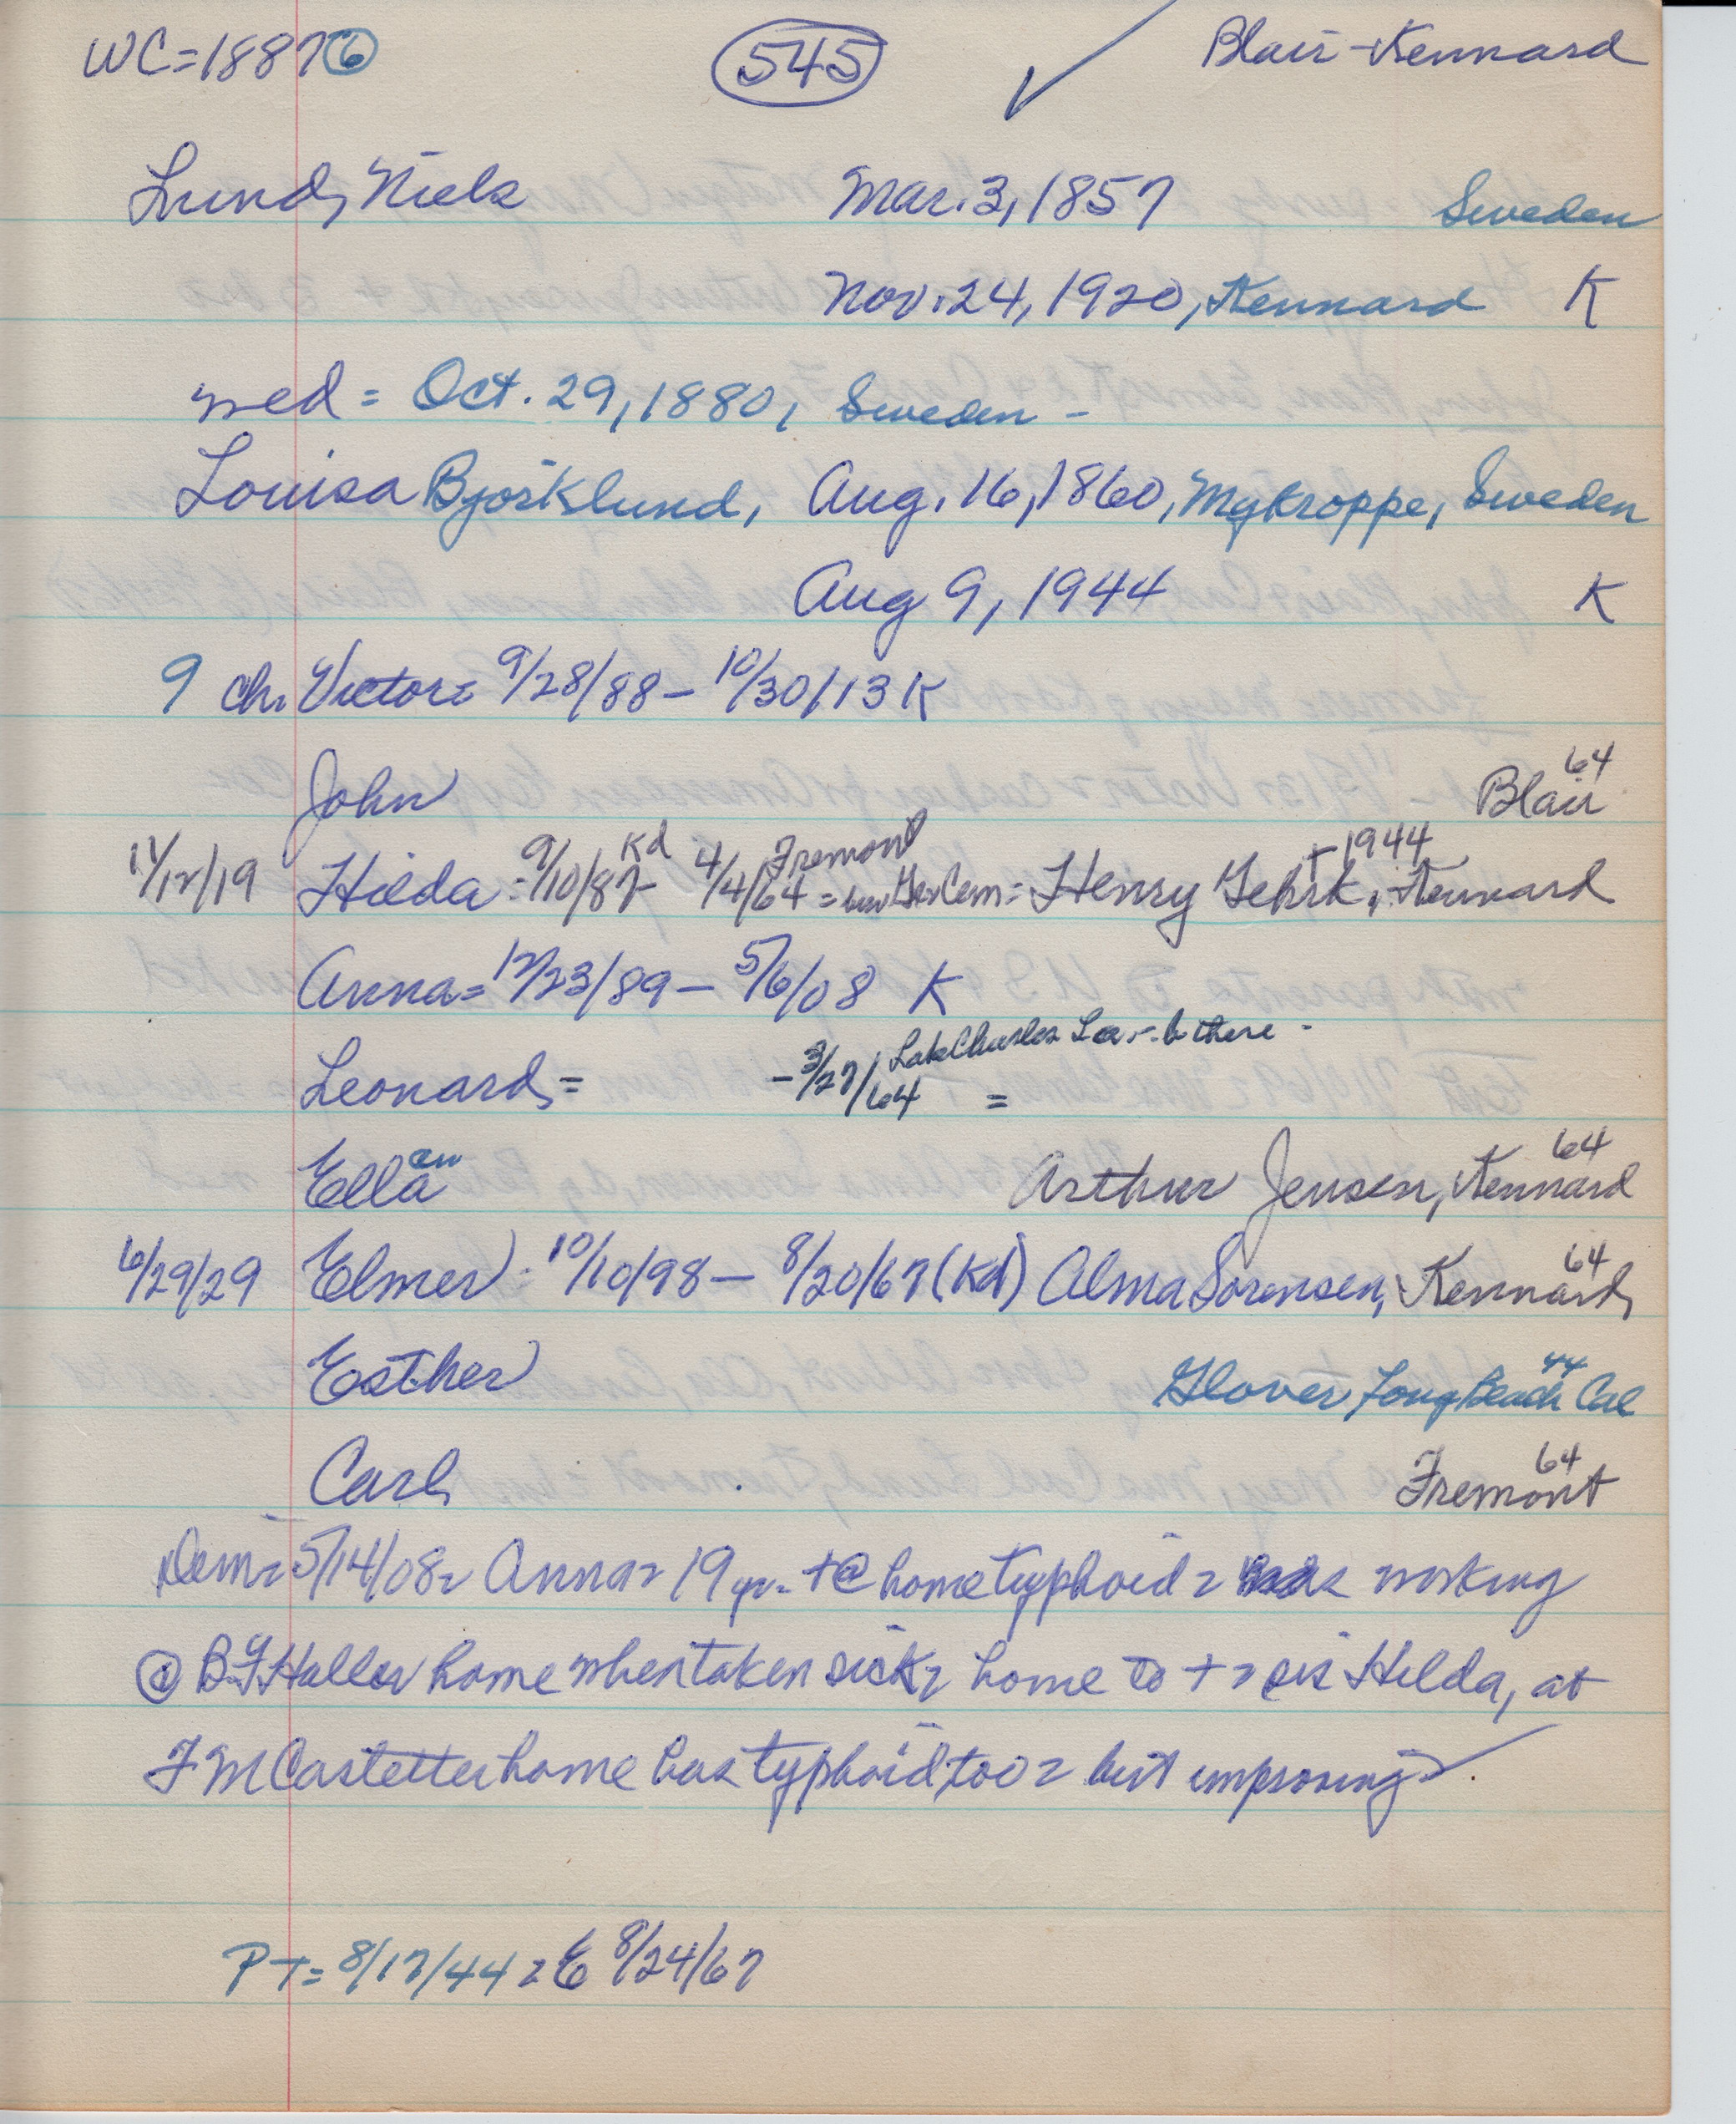 WC=1887⑥ 545 ✓ Blair-Kennard
Lund, Niels Mar. 3, 1857 Sweden
Nov. 24, 1920, Kennard K
med = Oct. 29, 1880, Sweden -
Louisa Bjorklund, Aug. 16, 1860, Mykroppe, Sweden
Aug 9, 1944 K
9 ch. Victor = 9/28/88 - 10/30/13 K
John Blair 64
11/12/19 Hilda = 9/10/87 Kd 4/4/64 Fremont = bur Cem = Henry Gehrk, + 1944 Kennard
Anna = 12/23/89 - 5/6/08 K
Leonard = - 3/27/64 Lake Charles La - b there - =
Ella an Arthur Jensen, Kennard 64
6/29/29 Elmer = 10/10/98 - 8/20/67 (Kd) Alma Sorensen, Kennard, 64
Esther Glover Long Beach Cal 44
Carl Fremont 64
Dem = 5/14/08 = Anna = 19 yr. + @ home typhoid = was working
@ B F Haller home when taken sick = home to + = sis Hilda, at
F M Castetter home has typhoid too = but improving ✓.
PT = 8/17/44 = E 8/24/67